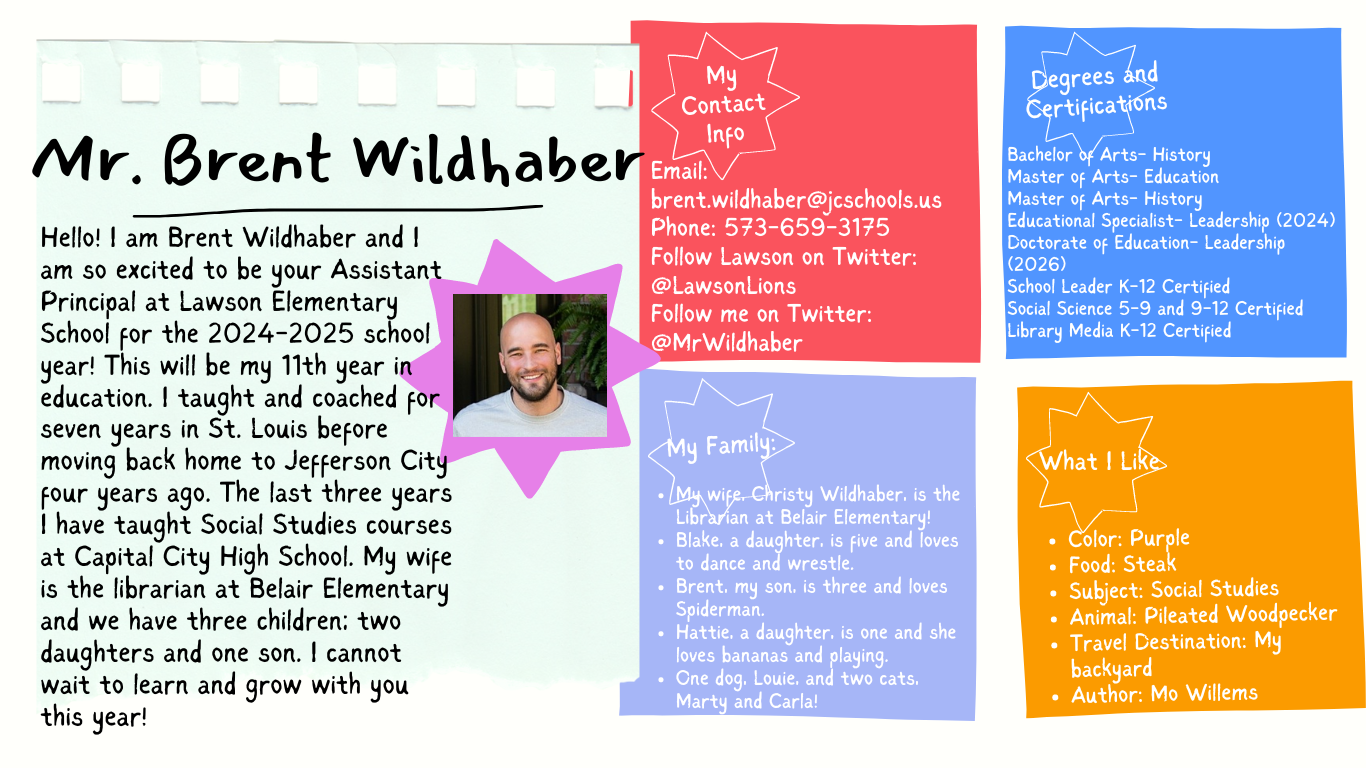 Mr. Brent Wildhaber
Hello! I am Brent Wildhaber and I
am so excited to be your Assistant
Principal at Lawson Elementary
School for the 2024-2025 school
year! This will be my 11th year in
education. I taught and coached for
seven years in St. Louis before
moving back home to Jefferson City
four years ago. The last three years
I have taught Social Studies courses
at Capital City High School. My wife
is the librarian at Belair Elementary
and we have three children; two
daughters and one son. I cannot
wait to learn and grow with you
this year!
My
Contact
Info
Email:
brent.wildhaber@jcschools.us
Phone: 573-659-3175
Follow Lawson on Twitter:
@LawsonLions
Follow me on Twitter:
@MrWildhaber
Degrees and
Certifications
Bachelor of Arts- History
Master of Arts- Education
Master of Arts- History
Educational Specialist- Leadership (2024)
Doctorate of Education- Leadership
(2026)
School Leader K-12 Certified
Social Science 5-9 and 9-12 Certified
Library Media K-12 Certified
My Family:
• My wife, Christy Wildhaber, is the
Librarian at Belair Elementary!
• Blake, a daughter, is five and loves
to dance and wrestle.
• Brent, my son, is three and loves
Spiderman.
• Hattie, a daughter, is one and she
loves bananas and playing.
• One dog, Louie, and two cats,
Marty and Carla!
What I Like
• Color: Purple
• Food: Steak
• Subject: Social Studies
• Animal: Pileated Woodpecker
• Travel Destination: My
backyard
• Author: Mo Willems